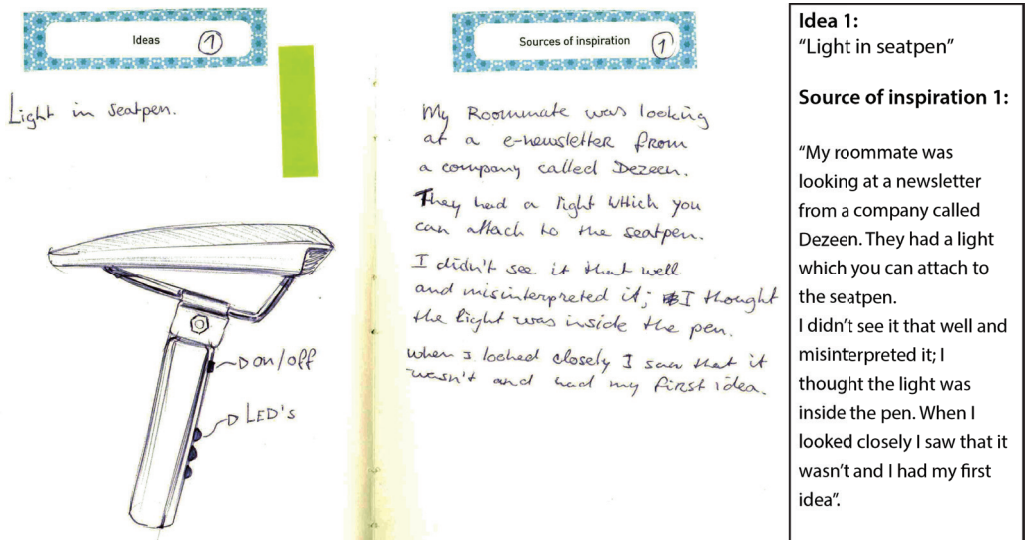 Ideas 1
Light in seatpen.
on/off
LED's
Sources of inspiration 1
My Roommate was looking
at a e-newsletter from
a company called Dezeen.
They had a light which you
can attach to the seatpen.
I didn't see it that well
and misinterpreted it; I thought
the light was inside the pen.
when I looked closely I saw that it
wasn't and had my first idea.
Idea 1:
“Light in seatpen”
Source of inspiration 1:
“My roommate was
looking at a newsletter
from a company called
Dezeen. They had a light
which you can attach to
the seatpen.
I didn’t see it that well and
misinterpreted it; I
thought the light was
inside the pen. When I
looked closely I saw that it
wasn’t and I had my first
idea”.